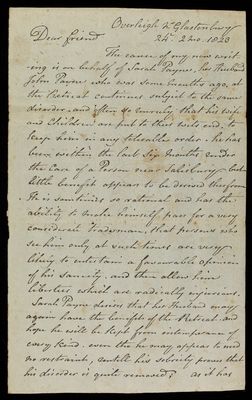 Overleigh Nr Glastonbury
24th 2 mo. 1823
Dear friend
The cause of my now writ-
ing is on behalf of Sarah Payne, her Husband
John Payne who was some months ago, at
the Retreat continues subject to the same
disorder, and often so severely that his wife
and Children are put to their wits end, to
keep him in any tolerable order. he has
been within the last Six months under
the Care of a Person near Salisbury but
little benefit appears to be derived therefrom
He is sometimes so rational and has the
ability to make himself pass for a very
considerate Tradesman, that persons who
see him only at such times are very
likely to entertain a favourable opinion
of his sanity, and then allow him
liberties which are radically injurious.
Sarah Payne desires that her Husband may
again have the benefit of the Retreat and
hope he will be kept from intemperance of
every kind. even tho he may appear to need
no restraint, untill his sobriety proves that
his disorder is quite removed, as it has